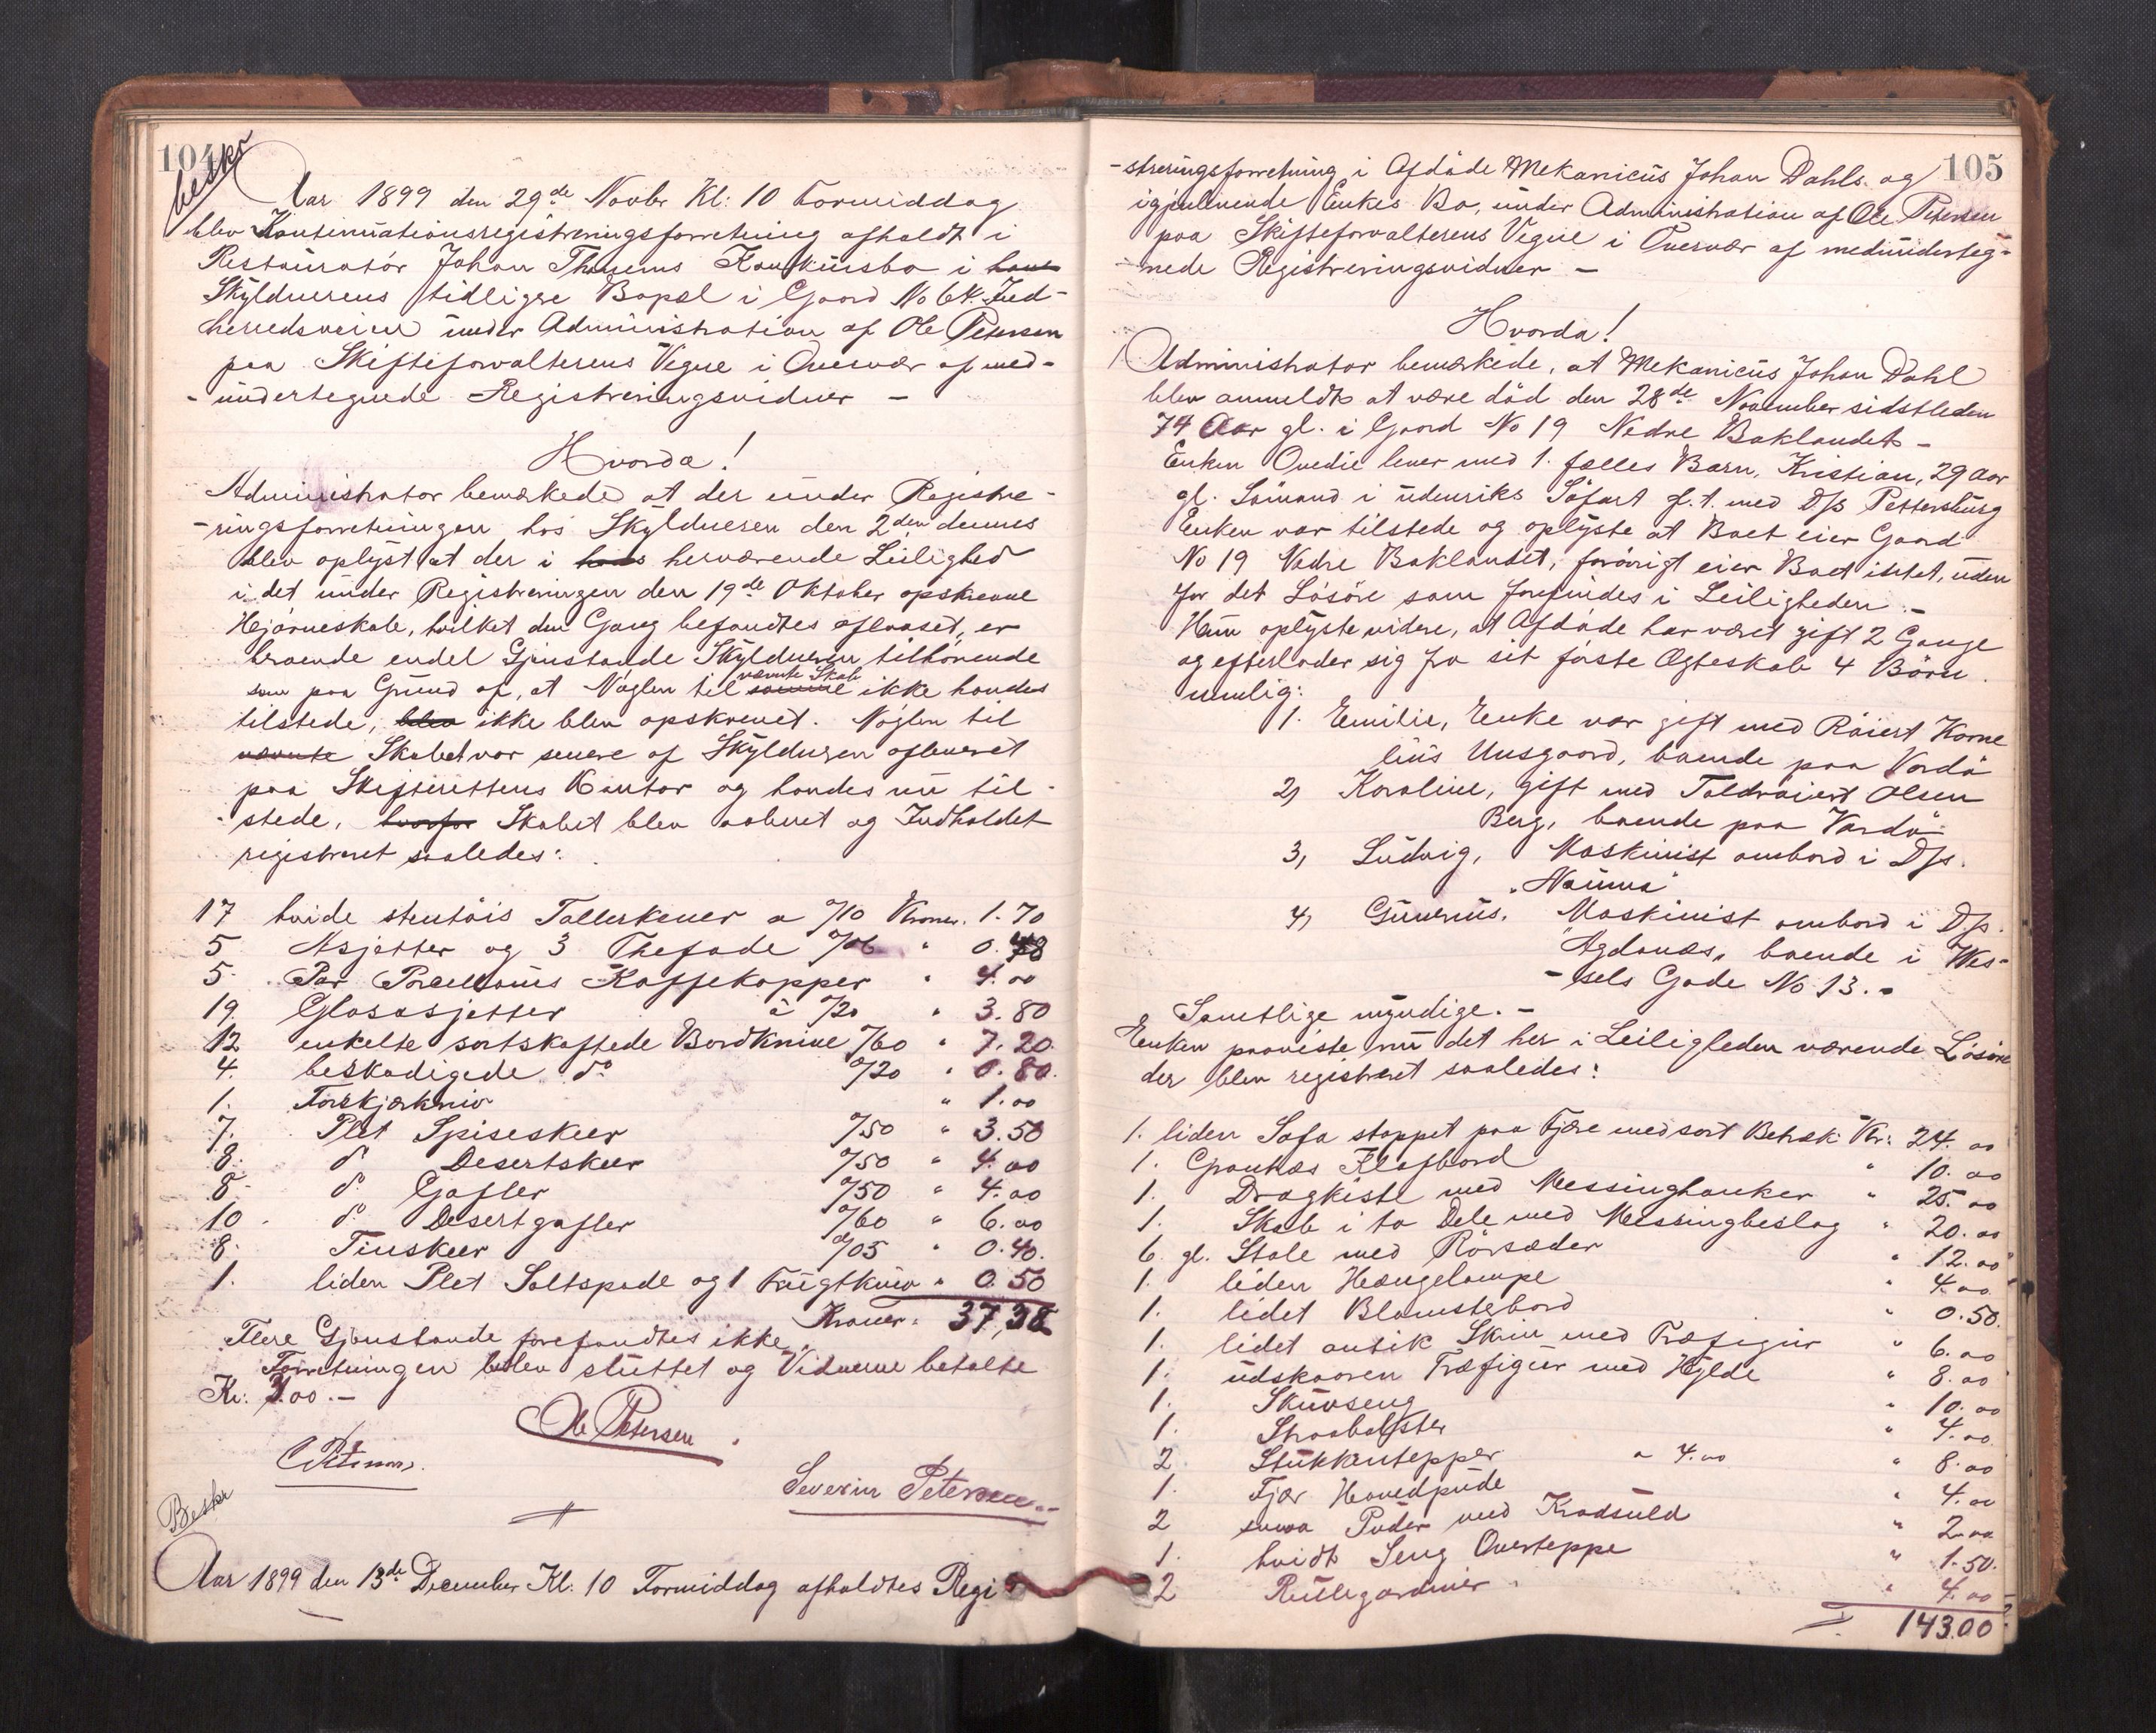 104
beskr
Aar 1899 den 29de Novbr Kl: 10 Formiddag
blev Kontinuationsregistreringsforretning afholdt i
Restauratør Johan Konkursbo i hans
Skyldnerens tidligere Bopæl i Gaard No 64. Ind-
herredsveien under Administration af Ole Petersen
paa Skifteforvalterens Vegne i Overvær af med-
-undertegnede Registreringsvidner -
Hvorda!
Administrator bemærkede at der under Registre-
-ringsforretningen hos Skyldneren den 2den dennes
blev oplyst at der i hans herværende Leilighed
i det under Registreringen den 19de Oktober opskrevne
Hjørneskab, hvilket den Gang befandtes aflaaset, er
beroende endel Gjenstande Skyldneren tilhørende
som paa Grund af, at Nøglen til samme nævnte Skab ikke havdes
tilstede, blev ikke blev opskrevet. Nøglen til
nævnte Skabet var senere af Skyldneren afleveret
paa Skifterettens Kontor og havdes nu til-
-stede, hvorfor Skabet blev aabnet og Indholdet
registreret saaledes:
17 hvide stentøis Tallerkener a %10 Kroner. 1.70
5 Asjetter og 3 Thefade %06 " 0.48
5 Par Porcellains Kaffekopper " 4.00
19. Glasasjetter à %20 " 3.80
12 enkelte sortskaftede Bordknive %60 " 7.20.
4. beskadigede do %20 " 0.80.
1. Forskjærkniv " 1.00
7. Plet Spiseskeer %50 " 3.50
8. do Desertskeer %50 " 4.00
8 do Gafler %50 " 4.00
10. do Desertgafler %60 " 6.00
8. Tinskeer %05 " 0.40.
1. liden Plet Saltspade og 1 Frugtkniv " 0.50
Kroner: 37,38
Flere Gjenstande forefandtes ikke.
Forretningen blev sluttet og Vidnerne betalte
Kr: 3.00.-
Ole Petersen.
Severin Petersen
Beskr
Aar 1899 den 13de December Kl. 10 Formiddag afholdtes Regi
105
-streringsforretning i Afdøde Mekanicus Johan Dahls og
igjenlevende Enkes Bo, under Administration af Ole Petersen
paa Skifteforvalterens Vegne i Overvær af medunderteg-
-nede Registreringsvidner -
Hvorda!
Administrator bemærkede, at Mekanicus Johan Dahl
blev anmeldt at være död den 28de November sidstleden
74 Aar gl. i Gaard No 19 Nedre Baklandet -
Enken Ovedie lever med 1. fælles Barn, Kristian, 29 Aar
gl. Sömand i udenriks Söfart f.t. med D/s Pettersburg
Enken var tilstede og oplyste at Boet eier Gaard
No 19 Nedre Baklandet, forövrigt eier Boet intet, uden
for det Lösöre som forefindes i Leiligheden. -
Hun oplyste videre, at Afdöde har været gift 2 Gange
og efterlader sig fra sit förste Ægteskab 4 Börn
nemlig:
1. Emilie, Enke var gift med Röiert Korne
lius Unsgaard, boende paa Vardö
2) Karoline, gift med Toldröiert Olsen
Berg, boende paa Vardö
3, Ludvig, Maskinist ombord i D/s.
"Nanna"
4) Gunerius, Maskinist ombord i D/s.
"Agdanæs", boende i Wes-
-sels Gade No 13. -
Samtlige myndige. -
Enken paaviste nu det her i Leiligheden værende Lösöre
der blev registreret saaledes:
1. liden Sofa stoppet paa Fjære med sort Betræk Kr: 24.00
1. Klafbord " 10.00
1. Dragkiste med Messinghanker " 25.00
1. Skab i to Dele med Messingbeslag " 20.00
6 gl. Stole med Rörsæder " 12.00
1. liden Hængelampe " 4.00
1. lidet Blomsterbord " 0.50.
1. lidet antik Skrin med Træfigur " 6.00
1. udskaaren Træfigur med Hylde " 8.00
1. Skuvseng " 10.00
1. Straabolster " 4.00
2. Stukkentepper a 4.00 " 8.00
1. Fjær Hovedpude " 4.00
2 smaa Puder med Kradsuld " 2.00
1. hvidt Seng Overteppe " 1.50.
2 Rullegardiner " 4.00
143.00